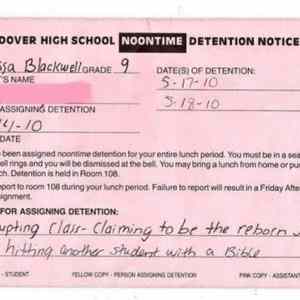 DOVER HIGH SCHOOL NOONTIME DETENTION NOTICE
ssa Blackwell GRADE 9 DATE(S) OF DETENTION:
T'S NAME 5-17-10
5-18-10
ASSIGNING DETENTION
14-10
DATE
been assigned noontime detention for your entire lunch period. You must be in a sea
bell rings and you will be dismissed at the bell. You may bring a lunch from home or pur
ch. Detention is held in Room 108.
port to room 108 during your lunch period. Failure to report will result in a Friday After
signment.
FOR ASSIGNING DETENTION:
upting class- claiming to be the reborn
hitting another student with a Bible
- STUDENT FELLOW COPY - PERSON ASSIGNING DETENTION PINK COPY - ASSISTANT